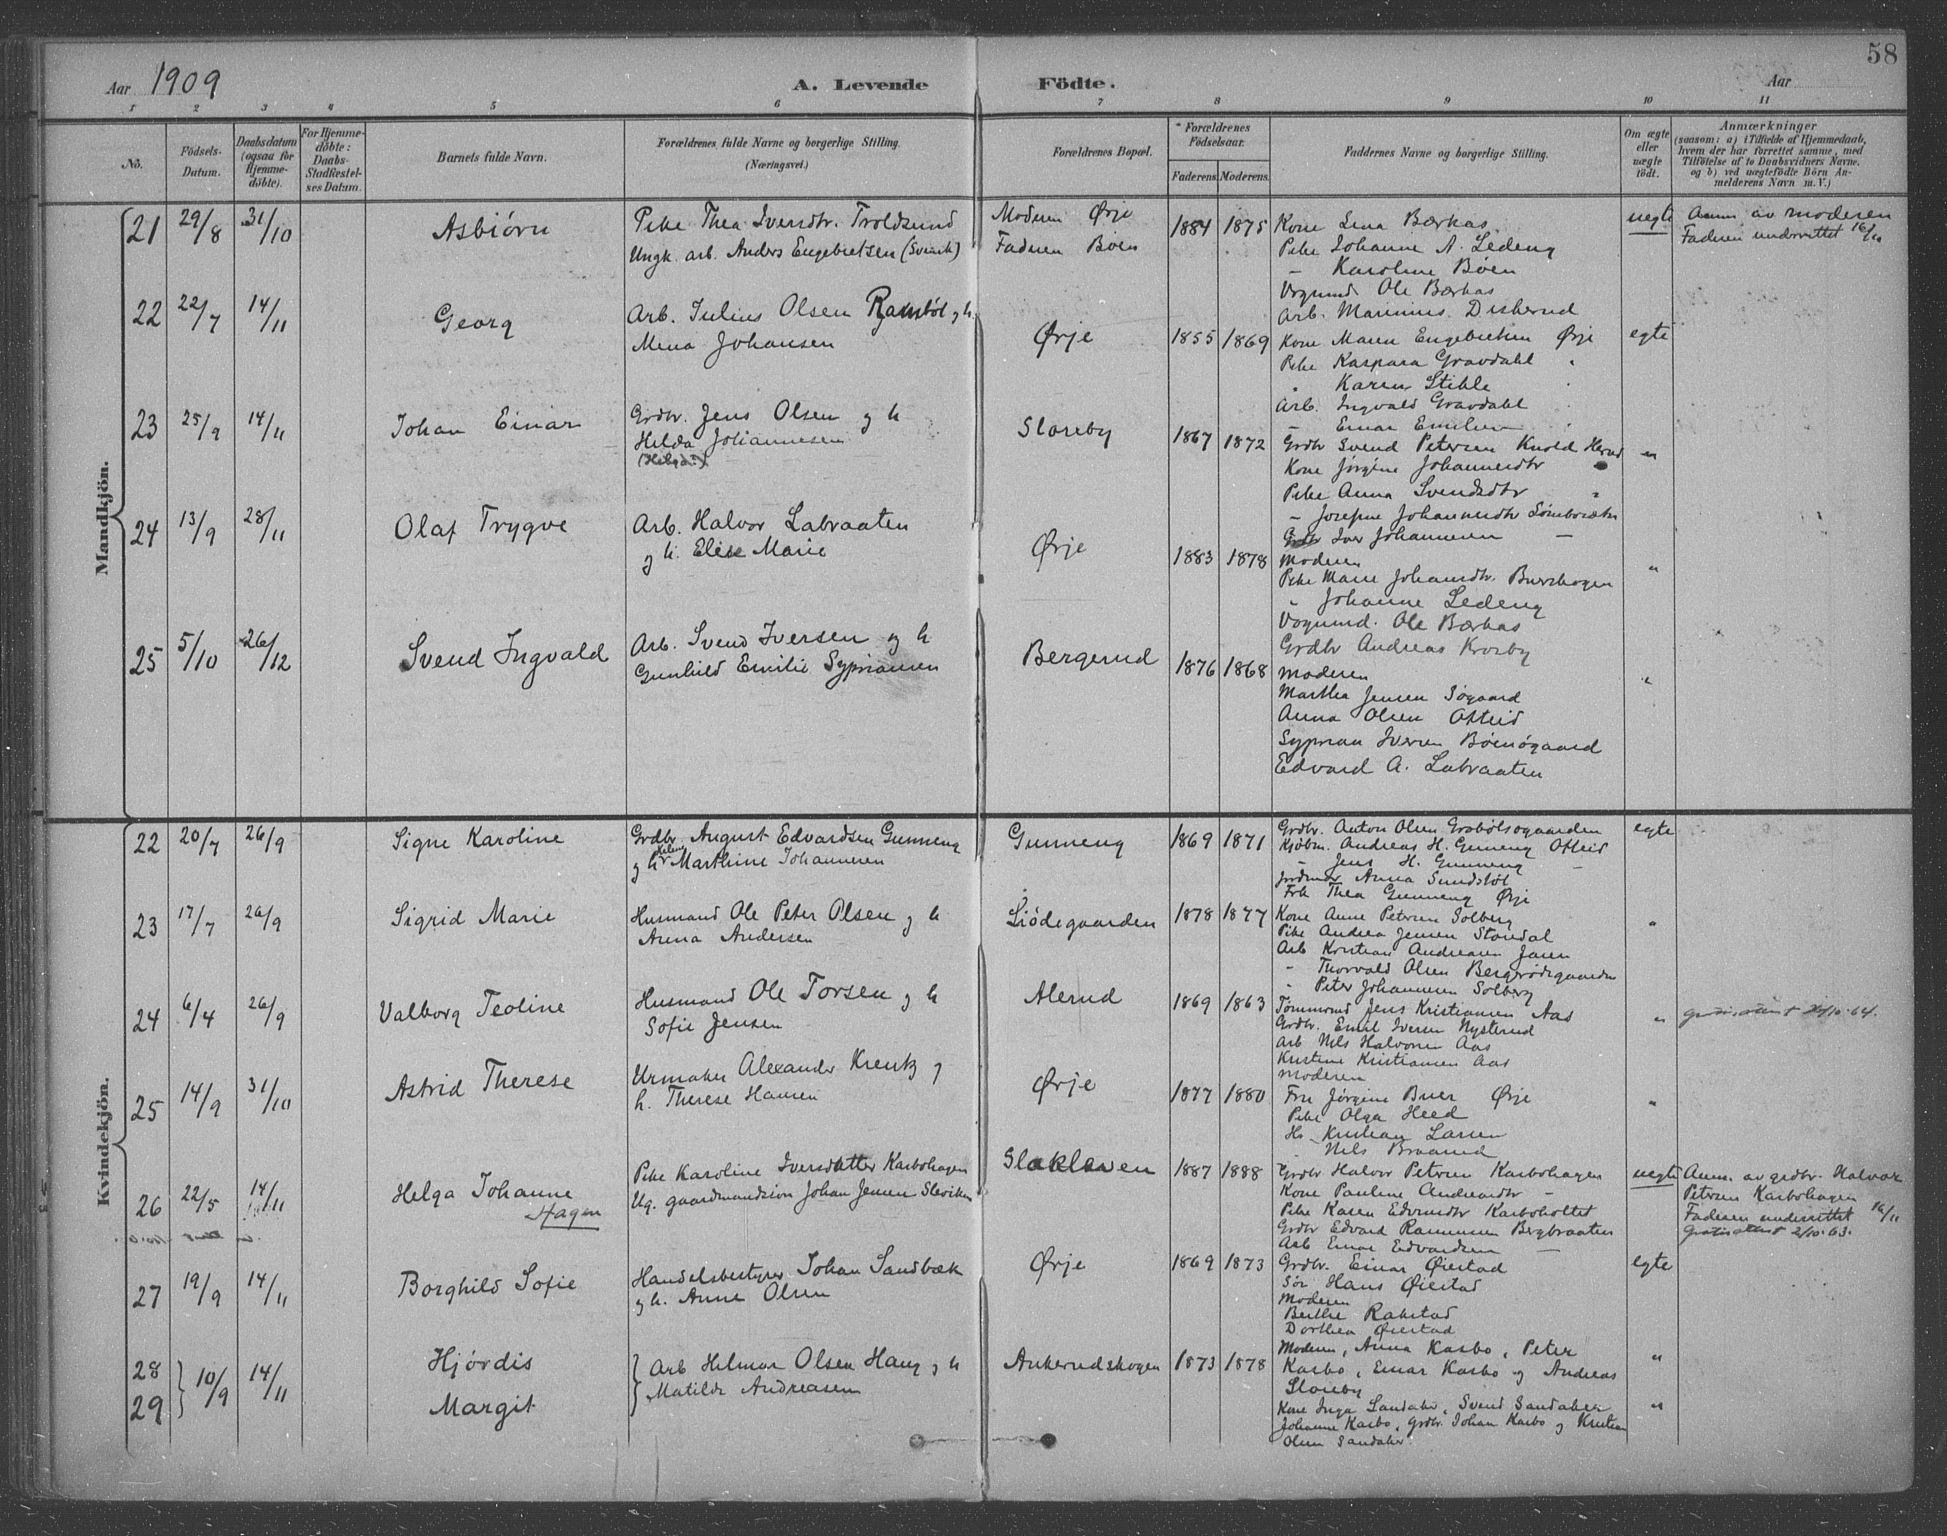 58
Aar 1909 A. Levende Födte. Aar
1 2 3 4 5 6 7 8 9 10 11
No. Födsels-Datum. Daabsdatum (ogsaa for Hjemme-döbte). For Hjemme-döbte: Daabs-Stadfestel-ses Datum. Barnets fulde Navn. Forældrenes fulde Navne og borgerlige Stilling. (Næringsvei.) Forældrenes Bopæl. * Forældrenes Födselsaar. Faderens. Moderens. Faddernes Navne og borgerlige Stilling. Om ægte eller uægte födt. Anmærkninger (saasom: a) i Tilfælde af Hjemmedaab, hvem der har forrettet samme, med Tilföielse af to Daabsvidners Navne, og b) ved uægtefödte Börn An-melderens Navn m. V.)
Mandkjön.
21 29/8 31/10 Asbiørn Pike Thea Ivendtr. Troldsund Moderen Ørje 1884 1875 Kone Lina Bærkas uegte Anm. av moderen
Ungk. arb. Anders Engebretsen (Svensk) Faderen Böen Pike Johanne A. Ledeng Faderen underrettet 16/10
– Karoline Bøen
Vognmd Ole Bærkas
Arb. Marinius Diskerud
22 22/7 14/11 Georg Arb. Julius Olsen Ramstöl og h. Ørje 1855 1869 Kone Maren Engebretsen Ørje egte
Mena Johansen Pike Kaspara Gravdahl "
" Karen Stikle
Arb. Ingvald Gravdahl
– Einar Emilsen
23 25/9 14/11 Johan Einar Grdbr. Jens Olsen og h Sloreby 1867 1872 Grdbr Svend Petersen Knold Herud "
Hilda Johannesen Kone Jørgine Johannesdtr "
(Helga?) Pike Anna Svendsdtr "
– Josefine Johannesdtr
Grdbr Iver Johannesen –
24 13/9 28/11 Olaf Trygve Arb. Halvor Labraaten Ørje 1883 1878 Moderen "
og h. Elise Marie Pike Marie Johansdtr.
" Johanne Ledeng
Vognmd. Ole Bærkas
Grdbr Andreas Krosby
25 5/10 26/12 Svend Ingvald Arb. Svend Iversen og h Bergerud 1876 1868 Moderen "
Gunhild Emilie Sypriansen Marthea Jensen Søgaard
Anna Olsen Otteid
Syprian Iversen Böensøgaard
Edvard A. Labraaten
Kvindekjön.
22 20/7 26/9 Signe Karoline Grdbr August Edvardsen Gunneng Gunneng 1869 1871 Grdbr. Anton Olsen Grabølsogaarden egte
og h. Helene Marthine Johannesen Kjøbm. Andreas H. Gunneng Otteid
– Jens H. Gunneng –
Jordmor Anna Sundstöl
Frk Thea Gunneng Ørje
23 17/7 26/9 Sigrid Marie Husmand Ole Peter Olsen og h Liödegaarden 1878 1877 Kone Anne Petersen Solberg "
Anna Andersen Pike Andrea Jensen Stondal
Arb Kristian Andreasen Jaren
– Thorvald Olsen Bergrödsgaarden
" Peter Johannesen Solberg
24 6/4 26/9 Valborg Teoline Husmand Ole Torsen og h Alerud 1869 1863 Tömmermd Jens Kristiansen Aas " gratis attest 20/10-64.
Sofie Jensen Grdbr. Emil Iversen Nysterud
Arb Nils Halvorsen Aas
Kristine Kristiansen Aas
Moderen
25 14/9 31/10 Astrid Therese Urmaker Alexander Krentz og Ørje 1877 1880 Fru Jørgine Buer Ørje "
h. Therese Hansen Pike Olga Heed
Hr. Kristian Larsen
Nils Braarud
26 22/5 14/11 Helga Johanne Pike Karoline Iversdatter Karbohagen Slakleven 1887 1888 Grdbr Halvor Petersen Karbohagen uegte Anm. av grdbr. Halvor
Hagen Ug. gaardmandssön Johan Jensen Sleviken Kone Pauline Andreasdtr – Petersen Karbohagen
Pike Karen Edvardsdtr Karboholtet Faderen underrettet 16/11
Grdbr Edvard Rasmussen Bergbraaten Gratis attest 2/10-63.
Arb Einar Edvardsen –
27 19/9 14/11 Borghild Sofie Handelsbestyrer Johan Sandbæk Ørje 1869 1873 Grdbr. Einar Øiestad egte
og h. Anne Olsen Sön Hans Øiestad
Moderen
Berthe Rakstad
Dorthea Øiestad
28 10/9 14/11 Hjørdis Arb Hilmar Olsen Haug og h Ankerudskogen 1873 1878 Moderen, Anna Karbo, Peter "
Matilde Andreasen Karbo, Einar Karbo og Andreas
Sloreby
29 Margit Kone Inga Sandaker, Svend Sandaker "
Johanne Karbo, Grdbr. Johan Karbo og Kristian
Olsen Sandaker